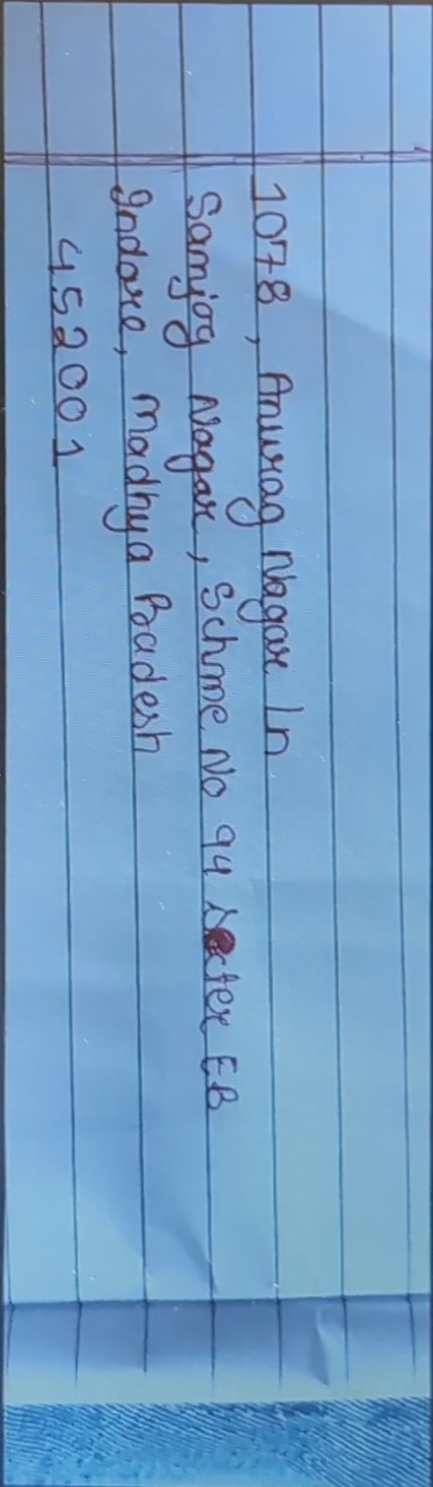 1078, Anurag Nagar Ln
Samjog Nagar, Schme No 94 Secter EB
Indore, Madhya Pradesh
452001